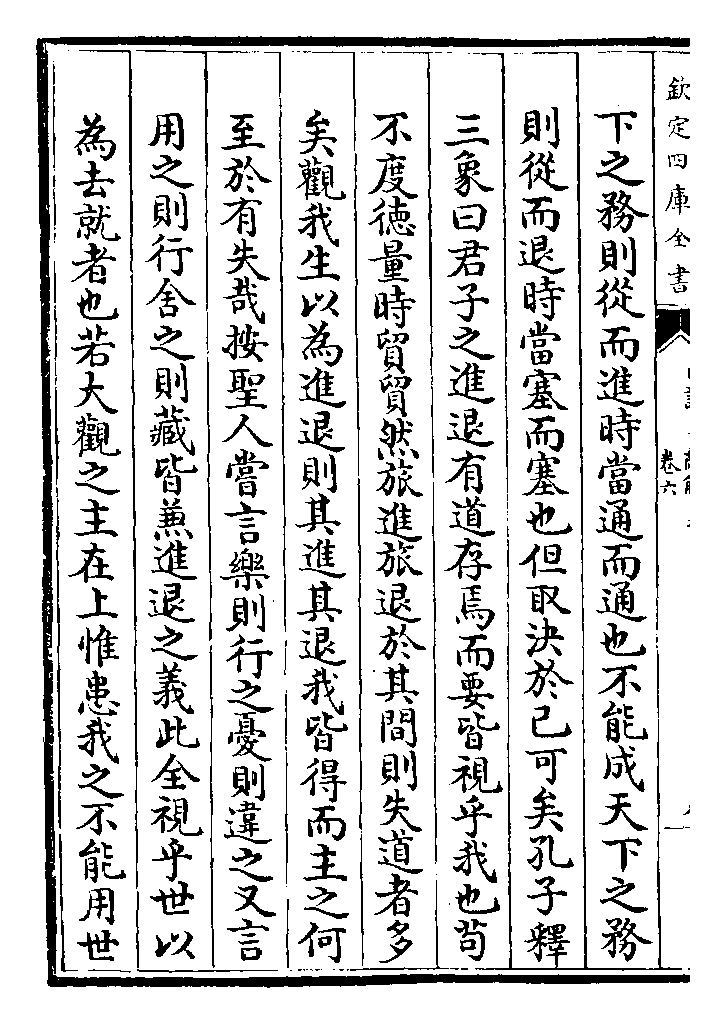 欽定四庫全書
卷六
下之務則從而進時當通而通也不能成天下之務
則從而退時當塞而塞也但取決於己可矣孔子釋
三象曰君子之進退有道存焉而要皆視乎我也茍
不度德量時貿貿然旅進旅退於其間則失道者多
矣觀我生以為進退則其進其退我皆得而主之何
至於有失哉按聖人嘗言樂則行之憂則違之又言
用之則行舍之則藏皆蕪進退之義此全視乎世以
為去就者也若大觀之主在上惟患我之不能用世